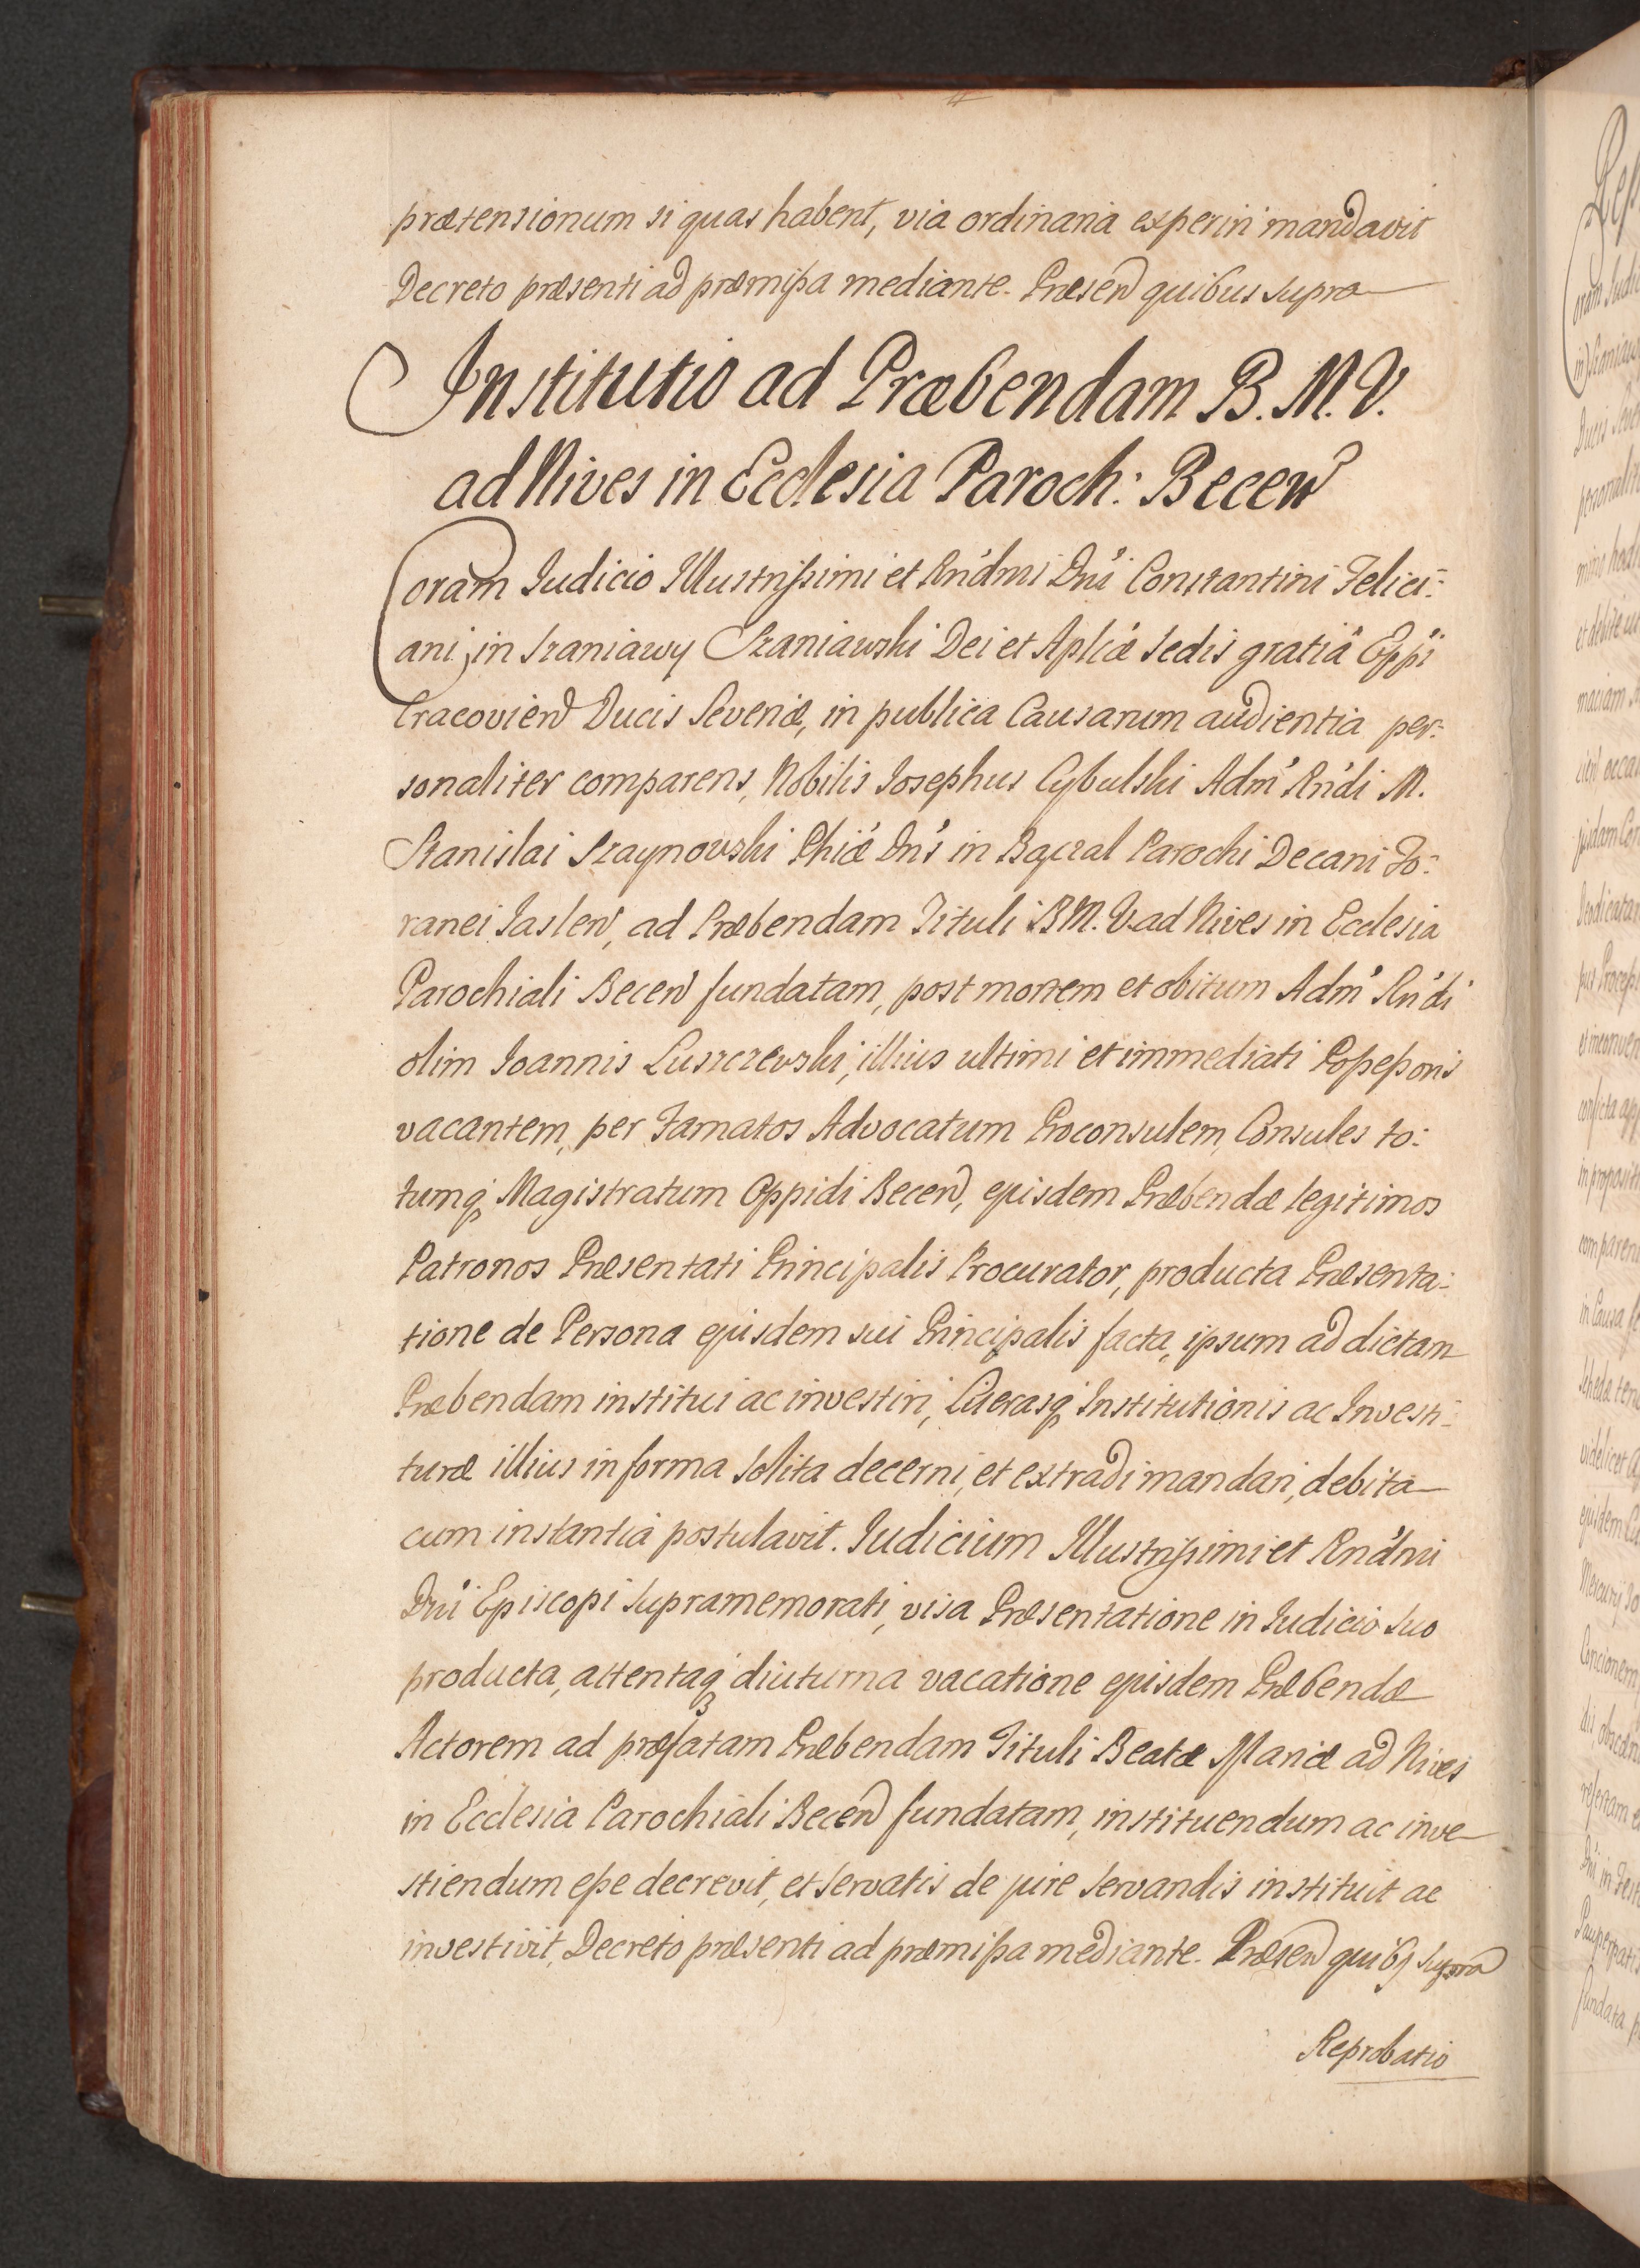 prætensionum si quas habent, via ordinaria experiri mandavit
Decreto præsenti ad præmissa mediante. Præsen quibus supra
Institutio ad Præbendam B. M. V.
ad Nives in Ecclesia Paroch: Becen
Coram Iudicio Illustrissimi et Rndmi Dni Constantini Felici=
ani in Szaniawy Szaniawski Dei et Aplicæ Sedis gratiâ Eppi
Cracovien Ducis Severiæ, in publica Causarum audientia per=
sonaliter comparens, Nobilis Iosephus Cybulski Adm Rndi M.
Stanislai Szaynowski Phiæ Dris in Bączal Parochi Decani Fo=
ranei Iaslen, ad Præbendam Tituli B M. V. ad Nives in Ecclesia
Parochiali Becen fundatam, post mortem et obitum Adm Rndi
olim Ioannis Luszczewski, illius ultimi et immediati Possessoris
vacantem, per Famatos Advocatum Proconsulem, Consules to=
tumq Magistratum Oppidi Becen, ejusdem Præbendæ legitimos
Patronos Præsentati Principalis Procurator, producta Præsenta=
tione de Persona ejusdem sui Principalis facta, ipsum ad dictam
Præbendam institui ac investiri, Literasq Institutionis ac Investi=
turæ illius in forma solita decerni, et extradi mandari, debita
cum instantia postulavit. Iudicium Illustrissimi et Rndmi
Dni Episcopi supramemorati, visa Præsentatione in Iudicio suo
producta, attentaq diuturna vacatione ejusdem Præbendæ
Actorem ad præfatam Præbendam Tituli Beatæ Mariæ ad Nives
in Ecclesia Parochiali Becen fundatam, instituendum ac inve
stiendum esse decrevit, et servatis de jure servandis instituit ac
investivit, Decreto præsenti ad præmissa mediante. Præsen quibs supra
Reprobatio